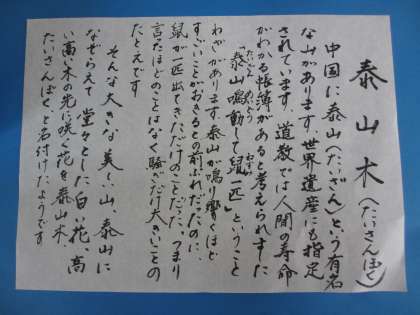 泰山木(たいさんぼく)
中国に泰山(たいざん)という有名
な山があります。世界遺産にも指定
されています。道教では人間の寿命
がわかる帳簿があると考えられました
「泰山鳴動して鼠一匹」ということ
わざがあります。泰山が鳴り響くほど
すごいことがおきるとの前ぶれだったのに、
鼠が一匹出てきただけのことだった。つまり
言ったほどのことはなく騒ぎだけ大きいことの
たとえです
そんな大きな美しい山、泰山に
なぞらえて堂々とした白い花、高
い高い木の先に咲く花を泰山木、
たいさんぼく、と名付けたようです